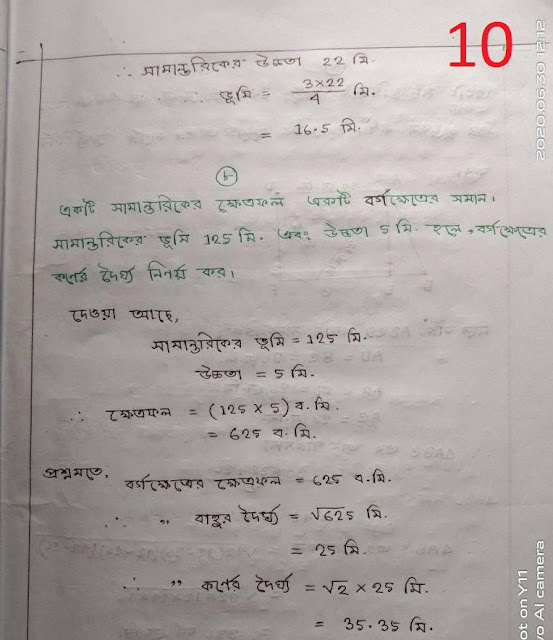 10
∴ সামান্তরিকের উচ্চতা 22 মি.
∴ ভূমি = 3×22/4 মি.
= 16.5 মি.
৮
একটি সামান্তরিকের ক্ষেত্রফল একটি বর্গক্ষেত্রের সমান।
সামান্তরিকের ভূমি 125 মি. এবং উচ্চতা 5 মি. হলে, বর্গক্ষেত্রের
কর্ণের দৈর্ঘ্য নির্ণয় কর।
দেওয়া আছে,
সামান্তরিকের ভূমি = 125 মি.
উচ্চতা = 5 মি.
∴ ক্ষেত্রফল = (125 × 5) ব. মি.
= 625 ব. মি.
প্রশ্নমতে,
বর্গক্ষেত্রের ক্ষেত্রফল = 625 ব. মি.
∴ " বাহুর দৈর্ঘ্য = √625 মি.
= 25 মি.
∴ " কর্ণের দৈর্ঘ্য = √2 × 25 মি.
= 35.35 মি.
2020.06.30 12:12
ot on Y11
o AI camera